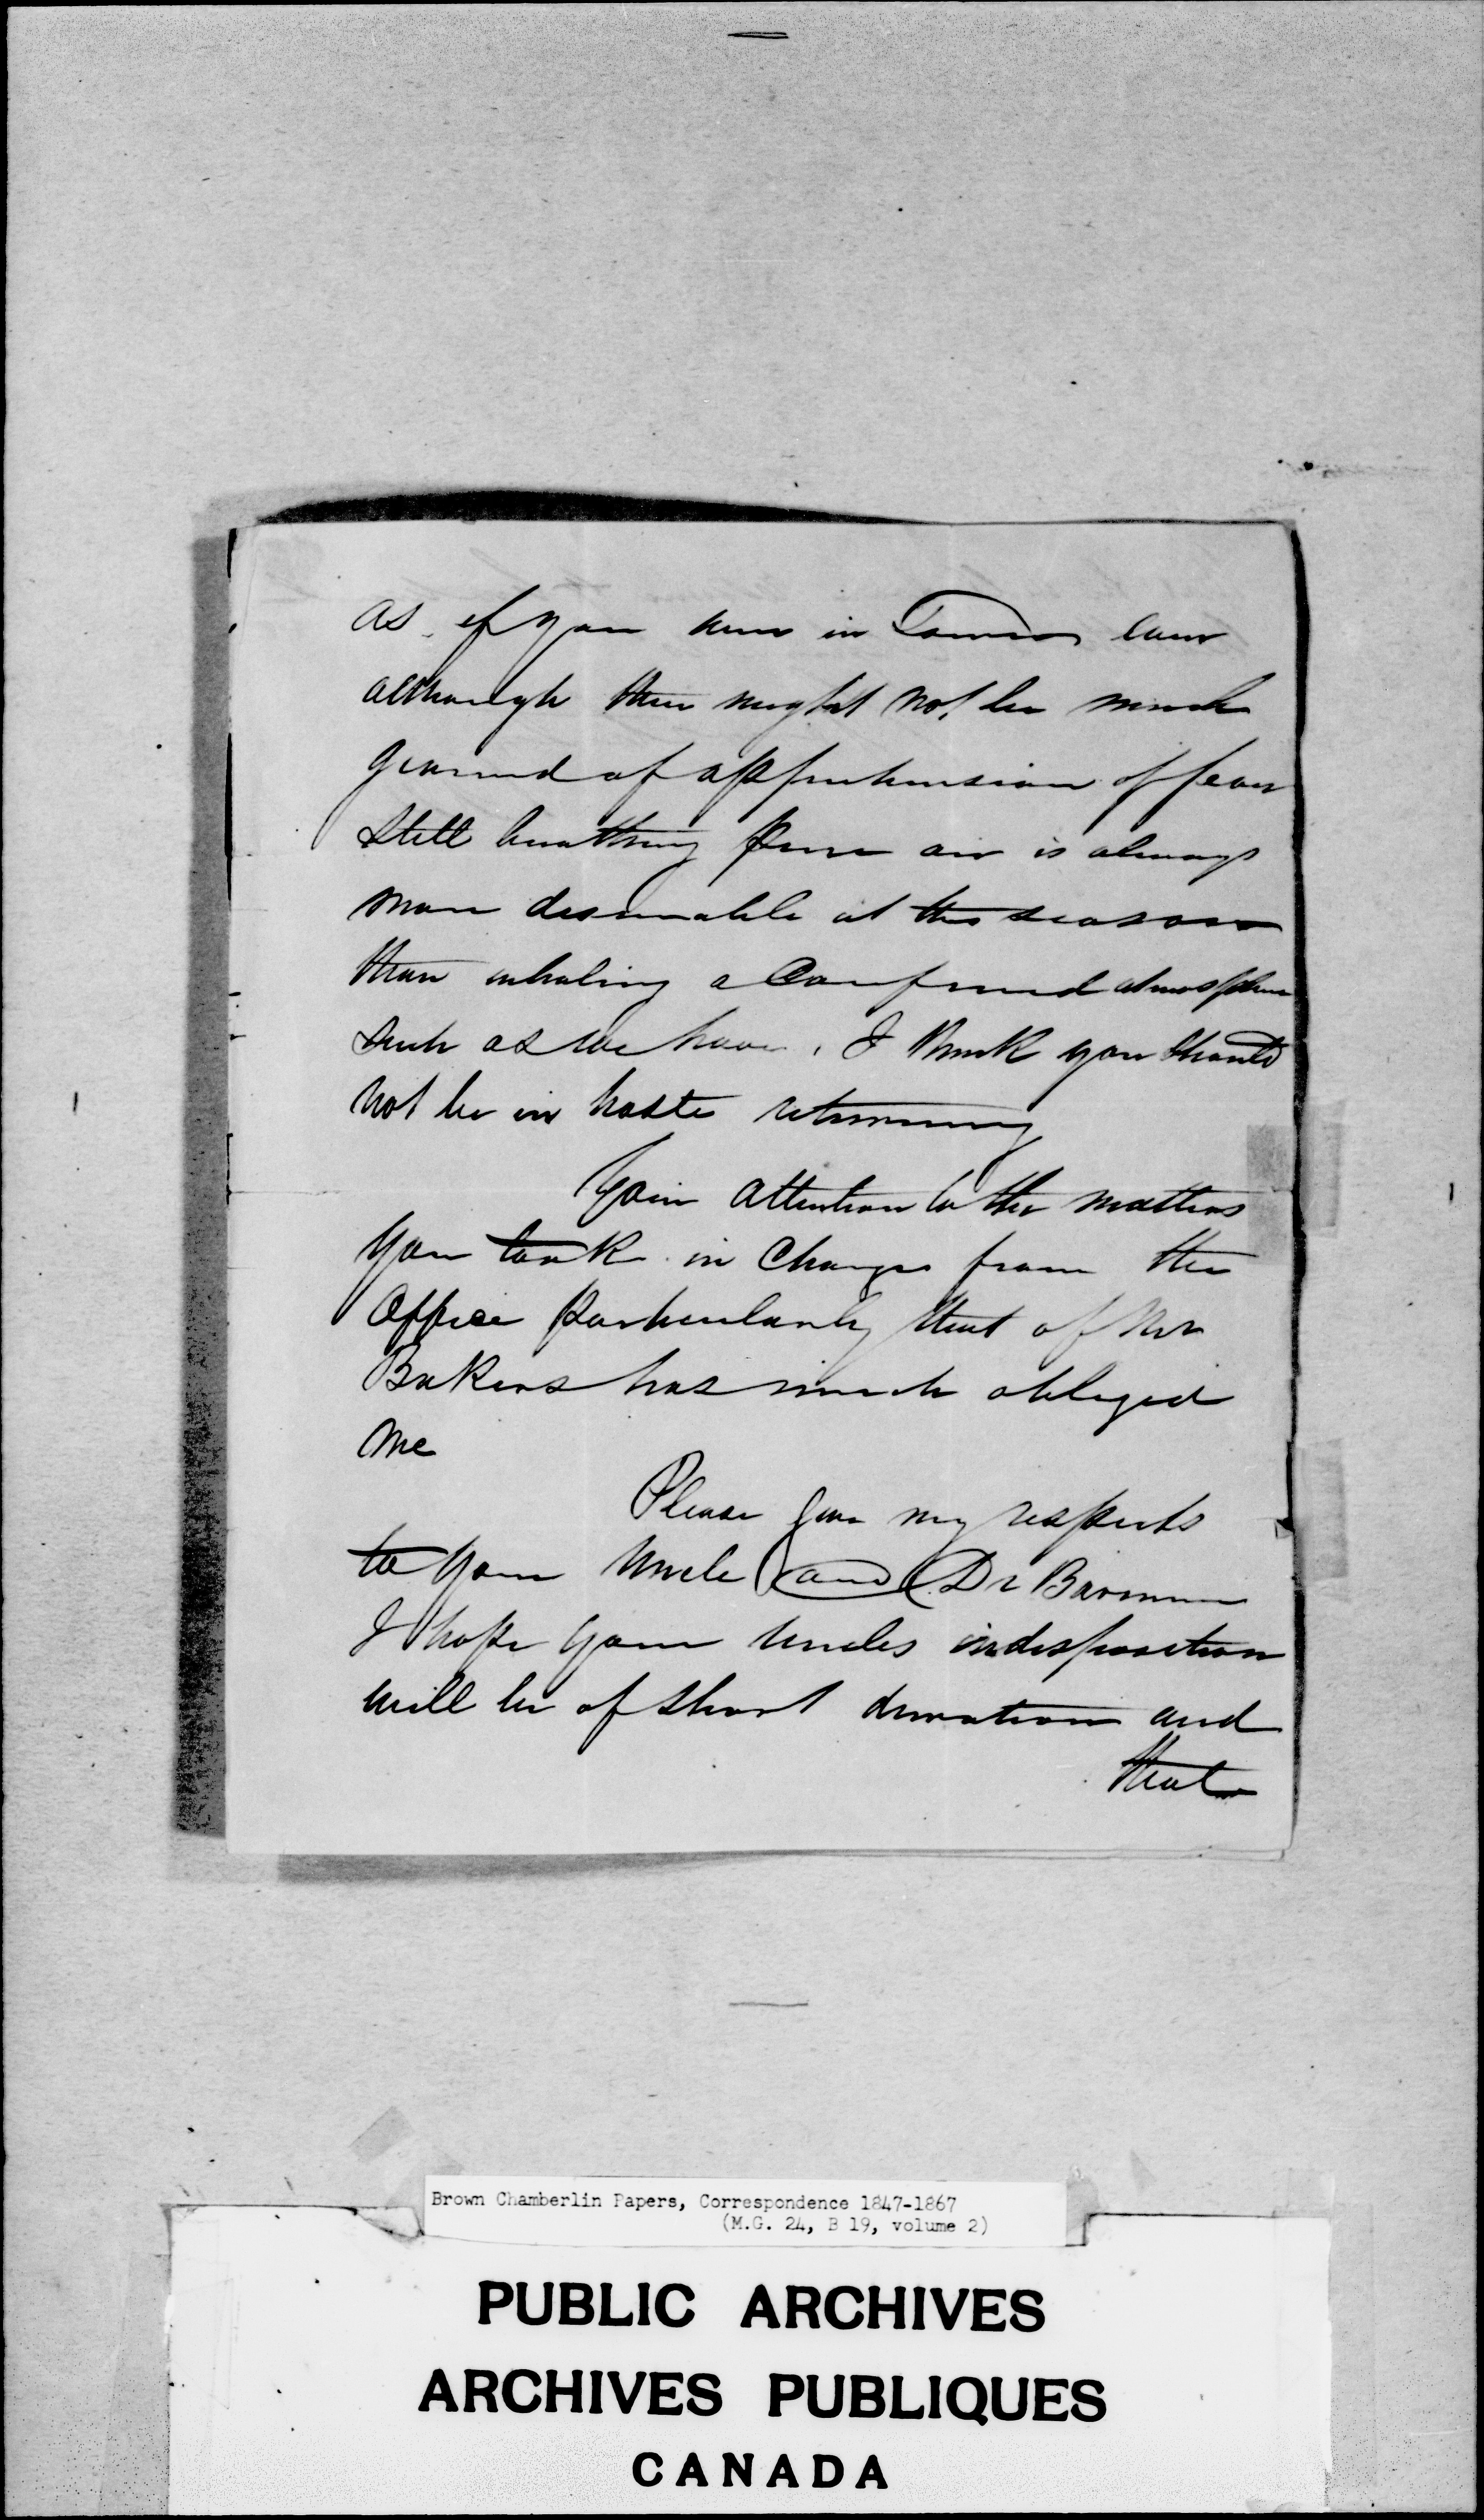 as if you were in Town even
although there might not be much
ground of apprehension of fear
still breathing pure air is always
more desireable at this season
than inhaling a Confined atmosphere
such as we have. I think you should
not be in haste returning
Your attention to the matters
you took in Charge from the
Office particularly that of Mr
Bakers has much obliged
me
Please give my respects
to your Uncle and Dr
I hope your Uncles indisposition
will be of short duration and
that
Brown Chamberlin Papers, Correspondence 1847-1867
(M.G. 24, B 19, volume 2)
PUBLIC ARCHIVES
ARCHIVES PUBLIQUES
CANADA